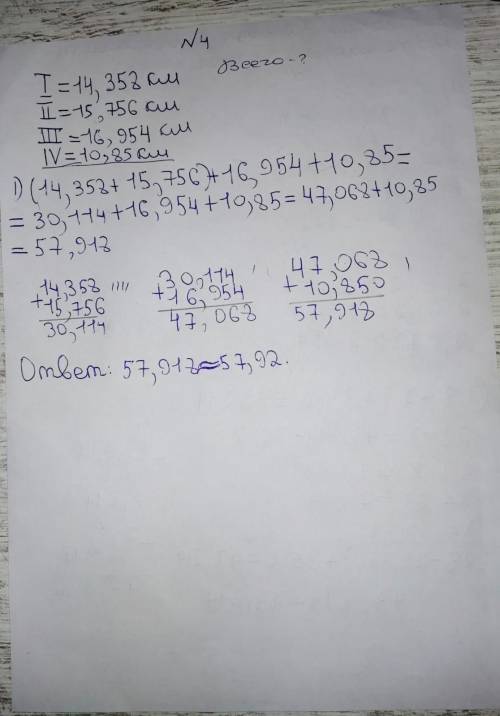 N4
Всего-?
I=14,358 км
II=15,756 км
III=16,954 км
IV=10,85 км
1)(14,358+15,756)+16,954+10,85=
=30,114+16,954+10,85=47,068+10,85
=57,918
14,358
+15,756
30,114
30,114
+16,954
47,068
47,068
+10,850
57,918
Ответ: 57,918≈57,92.